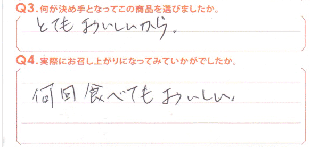 Q3.何が決め手となってこの商品を選びましたか。
とてもおいしいから。
Q4.実際にお召し上がりになってみていかがでしたか。
何回食べてもおいしい。